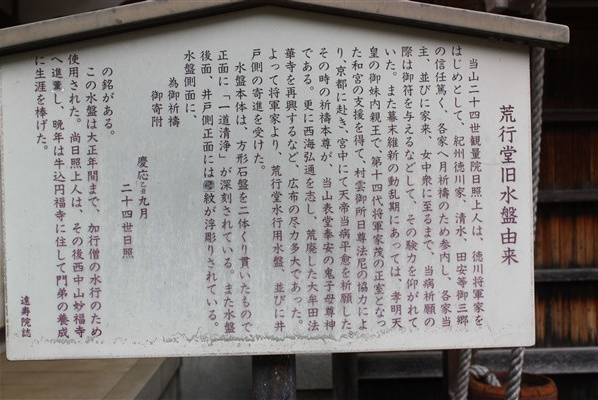 荒行堂旧水盤由来
当山二十四世観量院日照上人は、徳川将軍家を
はじめとして、紀州徳川家、清水、田安等御三郷
の信任篤く、各家へ月祈祷のため参内し、各家当
主、並びに家来、女中衆に至るまで、当病祈願の
際は御符を与えるなどして、その験力を仰がれて
いた。また幕末維新の動乱期にあっては、孝明天
皇の御妹内親王で、第十四代将軍家茂の正室となっ
た和宮の支援を得て、村雲御所日尊法尼の協力によ
り、京都に赴き、宮中にて天帝当病平愈を祈願した。
その時の祈祷本尊が、当山表堂奉安の鬼子母尊神
である。更に西海弘通を志し、荒廃した大牟田法
華寺を再興するなど、広布の尽力多大であった。
よって将軍家より、荒行堂水行用水盤、並びに井
戸側の寄進を受けた。
水盤本体は、方形石盤を二体くり貫いたもので
正面に「一道清浄」が深刻されている。また水盤
後面、井戸側正面には紋が浮彫りされている。
水盤側面に、
為御祈祷
御寄附
慶応乙丑九月
二十四世日照
の銘がある。
この水盤は大正年間まで、加行僧の水行のため
使用された。尚日照上人は、その後西中山妙福寺
へ進董し、晩年は牛込円福寺に住して門弟の養成
に生涯を捧げた。
遠寿院誌